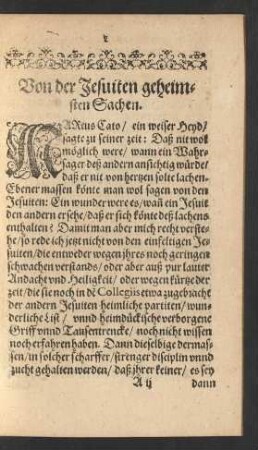 Von der Jesuiten geheim-
sten Sachen.
MARcus Cato/ ein weiser Heyd/
sagte zu seiner zeit: Daß nit wol
möglich were/ wann ein Wahr-
sager deß andern ansichtig würde/
daß er nit von hertzen solte lachen.
Ebener massen könte man wol sagen von den
Jesuiten: Ein wunder were es/ wañ ein Jesuit
den andern ersehe/ daß er sich könte deß lachens
enthalten? Damit man aber mich recht verste-
he/ so rede ich jetzt nicht von den einfeltigen Je-
suiten/ die entweder wegen jhres noch geringen
schwachen verstands/ oder aber auß pur lauter
Andacht vnd Heiligkeit/ oder wegen kürtze der
zeit/ die sie noch in dē Collegiis etwa zugebracht
der andern Jesuiten heimliche partiten/ wun-
derliche List/ vnnd heimdückische verborgene
Griff vnnd Tausentrencke/ noch nicht wissen
noch erfahren haben. Dann dieselbige dermas-
sen/ in solcher scharffer/ strenger disciplin vnnd
zucht gehalten werden/ daß jhrer keiner/ es sey
A ij dann